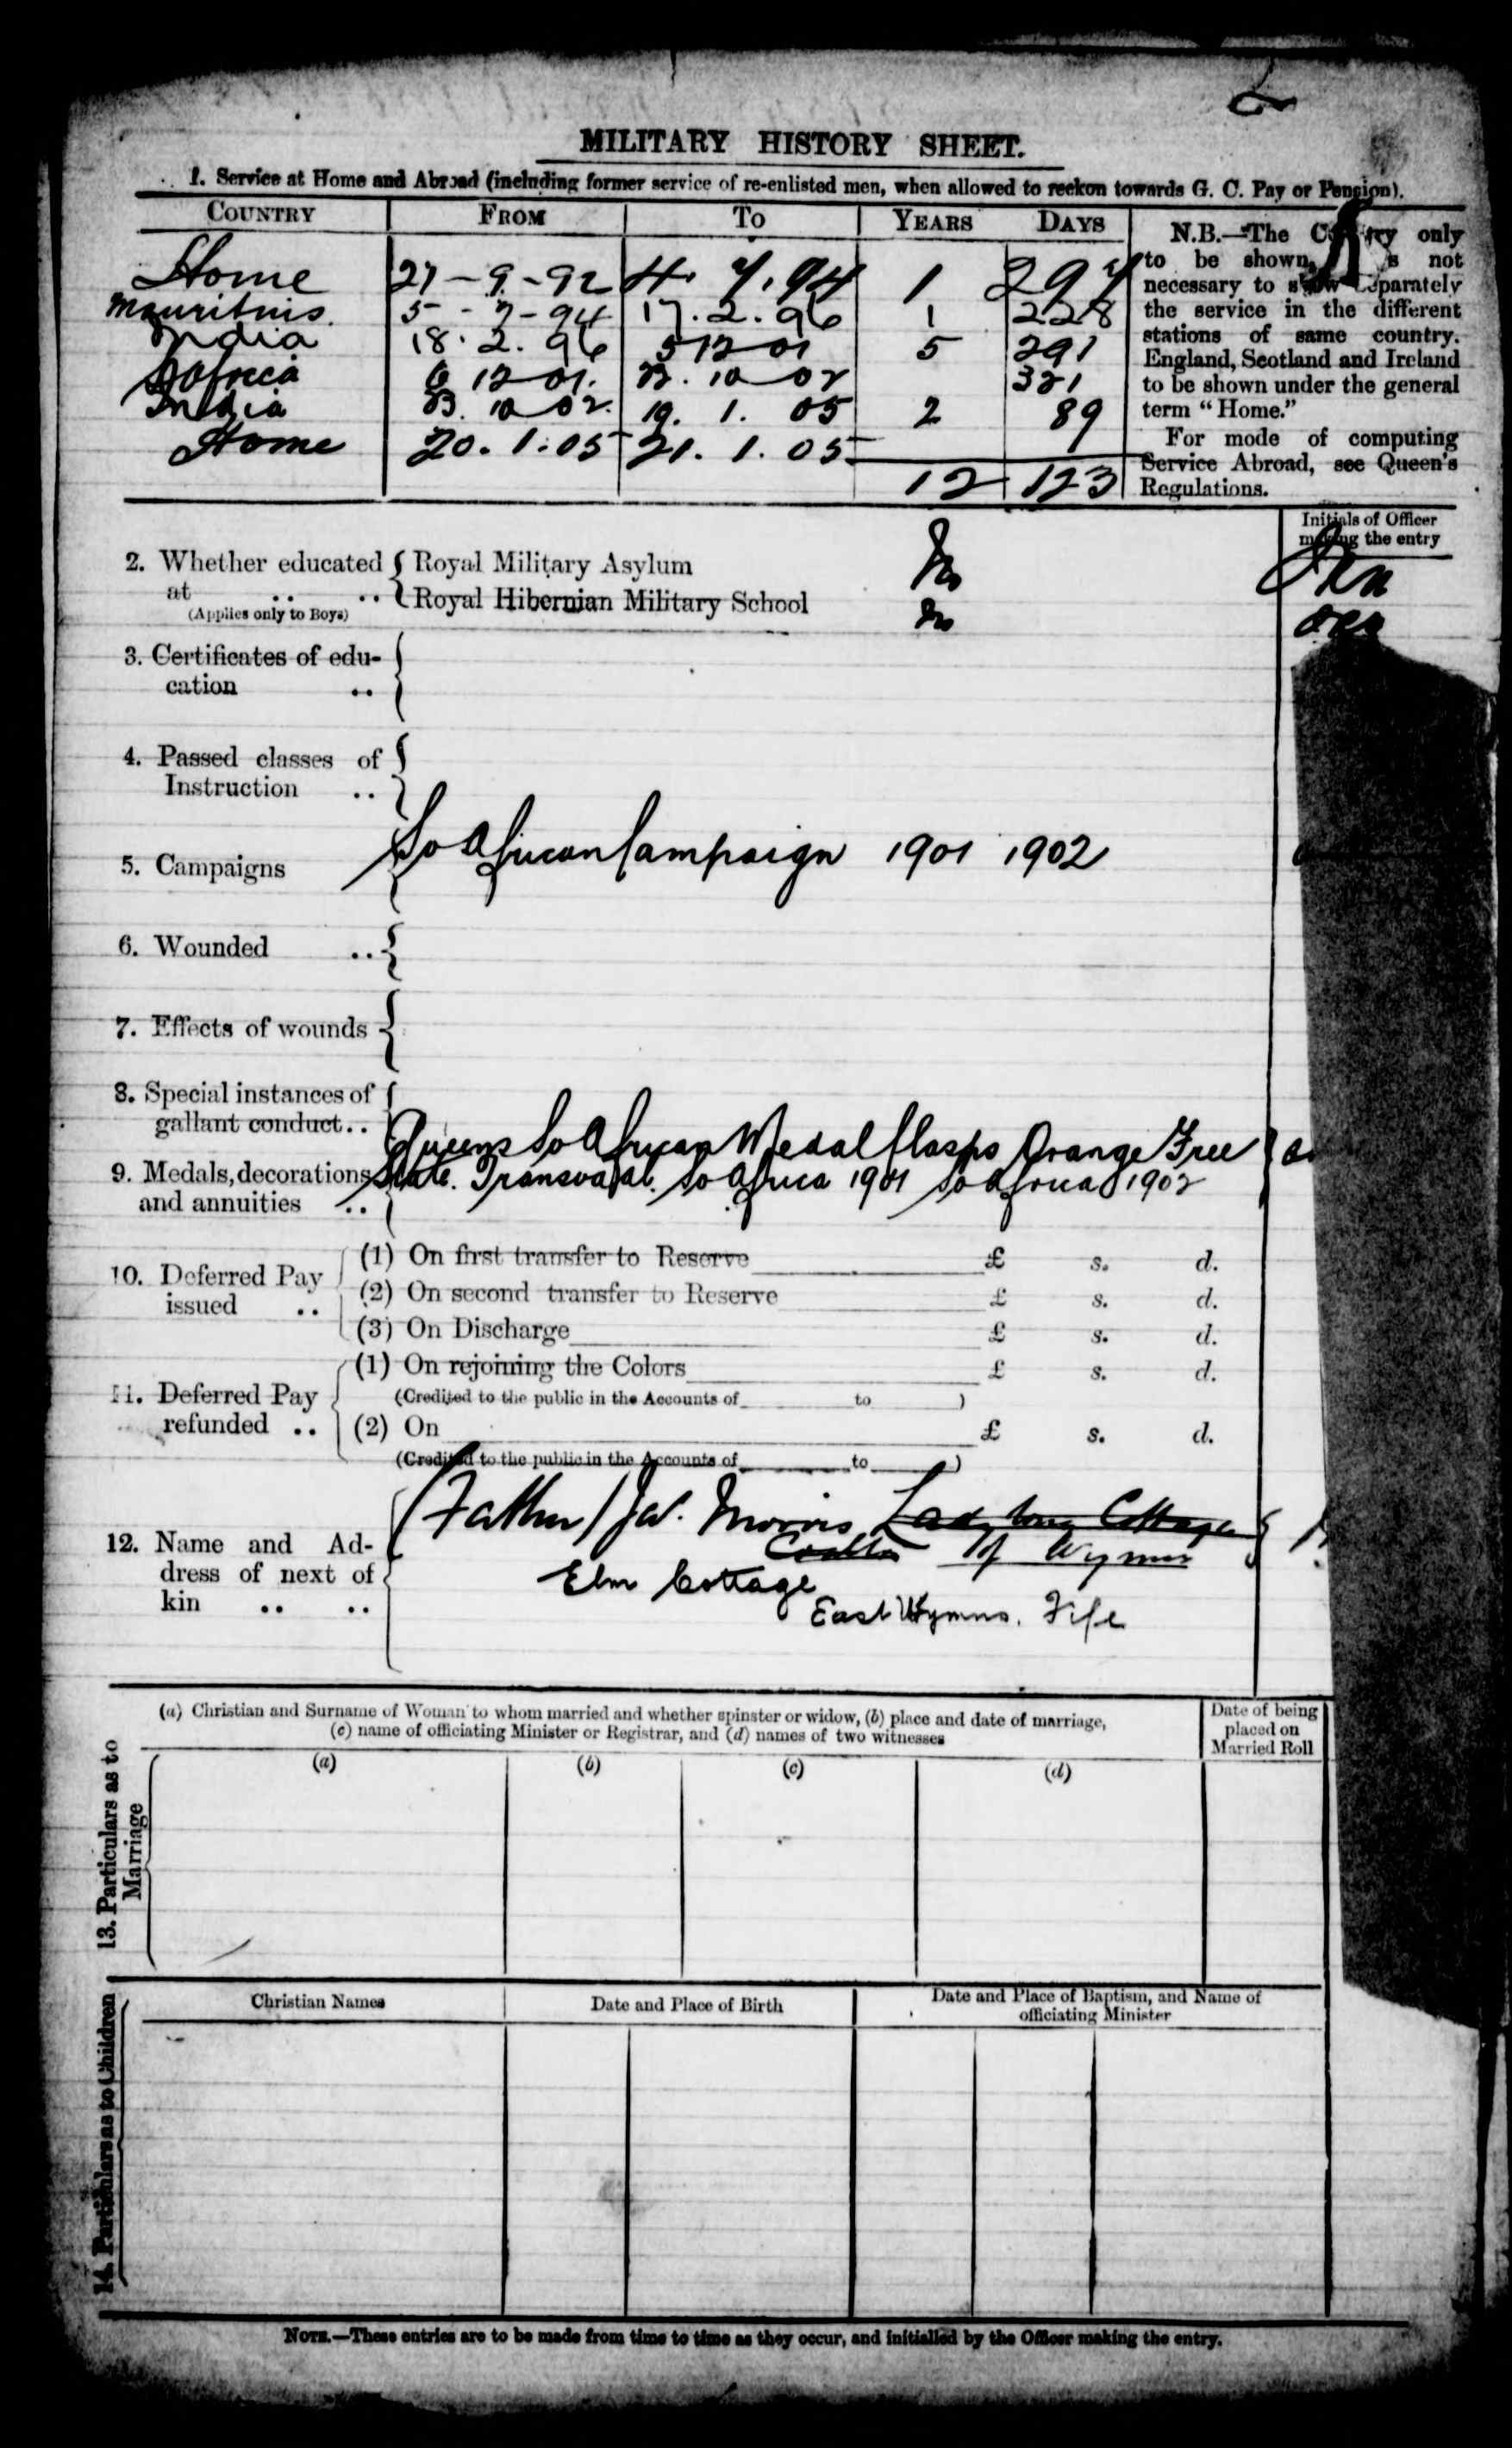 2
MILITARY HISTORY SHEET.
1. Service at Home and Abroad (including former service of re-enlisted men, when allowed to reckon towards G. C. Pay or Pension).
COUNTRY FROM TO YEARS DAYS
Home 27-9-92 4.7.94 1
Mauritius. 5-7-94 17.2.96 1 228
India 18.2.96 5 12 01 5 291
SAfrica 6 12 01. 22. 10 02 321
India 23. 10 02. 19. 1. 05 2 89
Home 20.1.05 21. 1. 05
12 123
N.B.—The only
to be shown, not
necessary to separately
the service in the different
stations of same country.
England, Scotland and Ireland
to be shown under the general
term "Home."
For mode of computing
Service Abroad, see Queen's
Regulations.
Initials of Officer
making the entry
2. Whether educated Royal Military Asylum No
at .. .. Royal Hibernian Military School No
(Applies only to Boys)
3. Certificates of edu-
cation ..
4. Passed classes of
Instruction ..
5. Campaigns So African Campaign 1901 1902
6. Wounded ..
7. Effects of wounds
8. Special instances of
gallant conduct..
Queens So African Medal Clasps Orange Free
9. Medals, decorations State. Transvaal. So Africa 1901 So Africa 1902
and annuities ..
10. Deferred Pay issued .. (1) On first transfer to Reserve £ s. d.
(2) On second transfer to Reserve £ s. d.
(3) On Discharge £ s. d.
11. Deferred Pay refunded .. (1) On rejoining the Colors £ s. d.
(Credited to the public in the Accounts of to )
(2) On £ s. d.
(Credited to the public in the Accounts of to )
(Father) Morris Cottage
12. Name and Ad- of Wymss
dress of next of Elm Cottage
kin .. .. East Wymss. Fife
13. Particulars as to Marriage
(a) Christian and Surname of Woman to whom married and whether spinster or widow, (b) place and date of marriage,
(c) name of officiating Minister or Registrar, and (d) names of two witnesses
Date of being
placed on
Married Roll
(a) (b) (c) (d)
14. Particulars as to Children
Christian Names Date and Place of Birth Date and Place of Baptism, and Name of
officiating Minister
NOTE.—These entries are to be made from time to time as they occur, and initialled by the Officer making the entry.